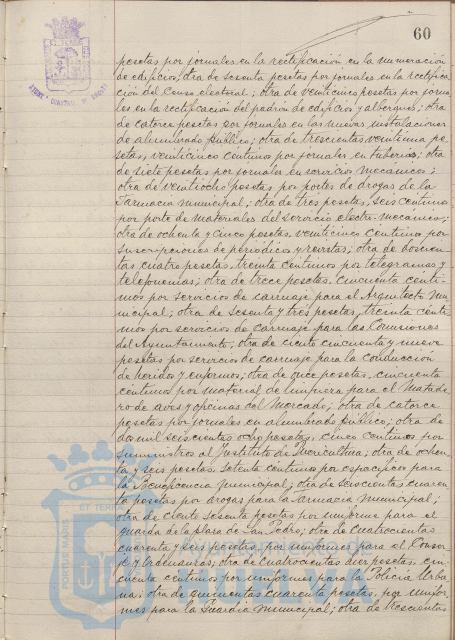 60
pesetas por jornales en la rectificación en la numeración
de edificios; otra de sesenta pesetas por jornales en la rectifica
ción del Censo electoral; otra de veinticinco pesetas por jorna
les en la rectificación del padrón de edificios y albergues; otra
de catorce pesetas por jornales en las nuevas instalaciones
de alumbrado público; otra de trescientas veintiuna pe
setas, veinticinco centimos por jornales en tuberias; otra
de siete pesetas por jornales en servicios mecanicos;
otra de veintiocho pesetas por portes de drogas de la
Farmacia municipal; otra de tres pesetas, seis centimos
por porte de materiales del servicio electro-mecanico;
otra de ochenta y cinco pesetas, veinticinco centimos por
suscripciones de periódicos y revistas; otra de doscien-
tas cuatro pesetas, treinta centimos por telegramas y
telefonemas; otra de trece pesetas, cincuenta centi-
mos por servicios de carruaje para el Arquitecto mu
nicipal; otra de sesenta y tres pesetas, treinta centi
mos por servicios de carruaje para las Comisiones
del Ayuntamiento; otra de ciento cincuenta y nueve
pesetas por servicio de carruaje para la conducción
de heridos y enfermos; otra de once pesetas, cincuenta
centimos por material de limpieza para el Matade
ro de aves y oficinas del Mercado; otra de catorce
pesetas por jornales en alumbrado público; otra de
dos mil seiscientas ocho pesetas, cinco centimos por
suministros al Instituto de Puericultura; otra de ochen
ta y seis pesetas, setenta centimos por especificos para
la Beneficencia municipal; otra de seiscientas cuaren
ta pesetas por drogas para la Farmacia municipal;
otra de ciento sesenta pesetas por uniforme para el
guarda de la plaza de San Pedro; otra de cuatrocientas
cuarenta y seis pesetas, por uniformes para el Conser
je y Ordenanzas; otra de cuatrocientas diez pesetas, cin
cuenta centimos por uniformes para la Policia Urba
na; otra de quinientas cuarenta pesetas, por unifor
mes para la Guardia municipal; otra de trescientas